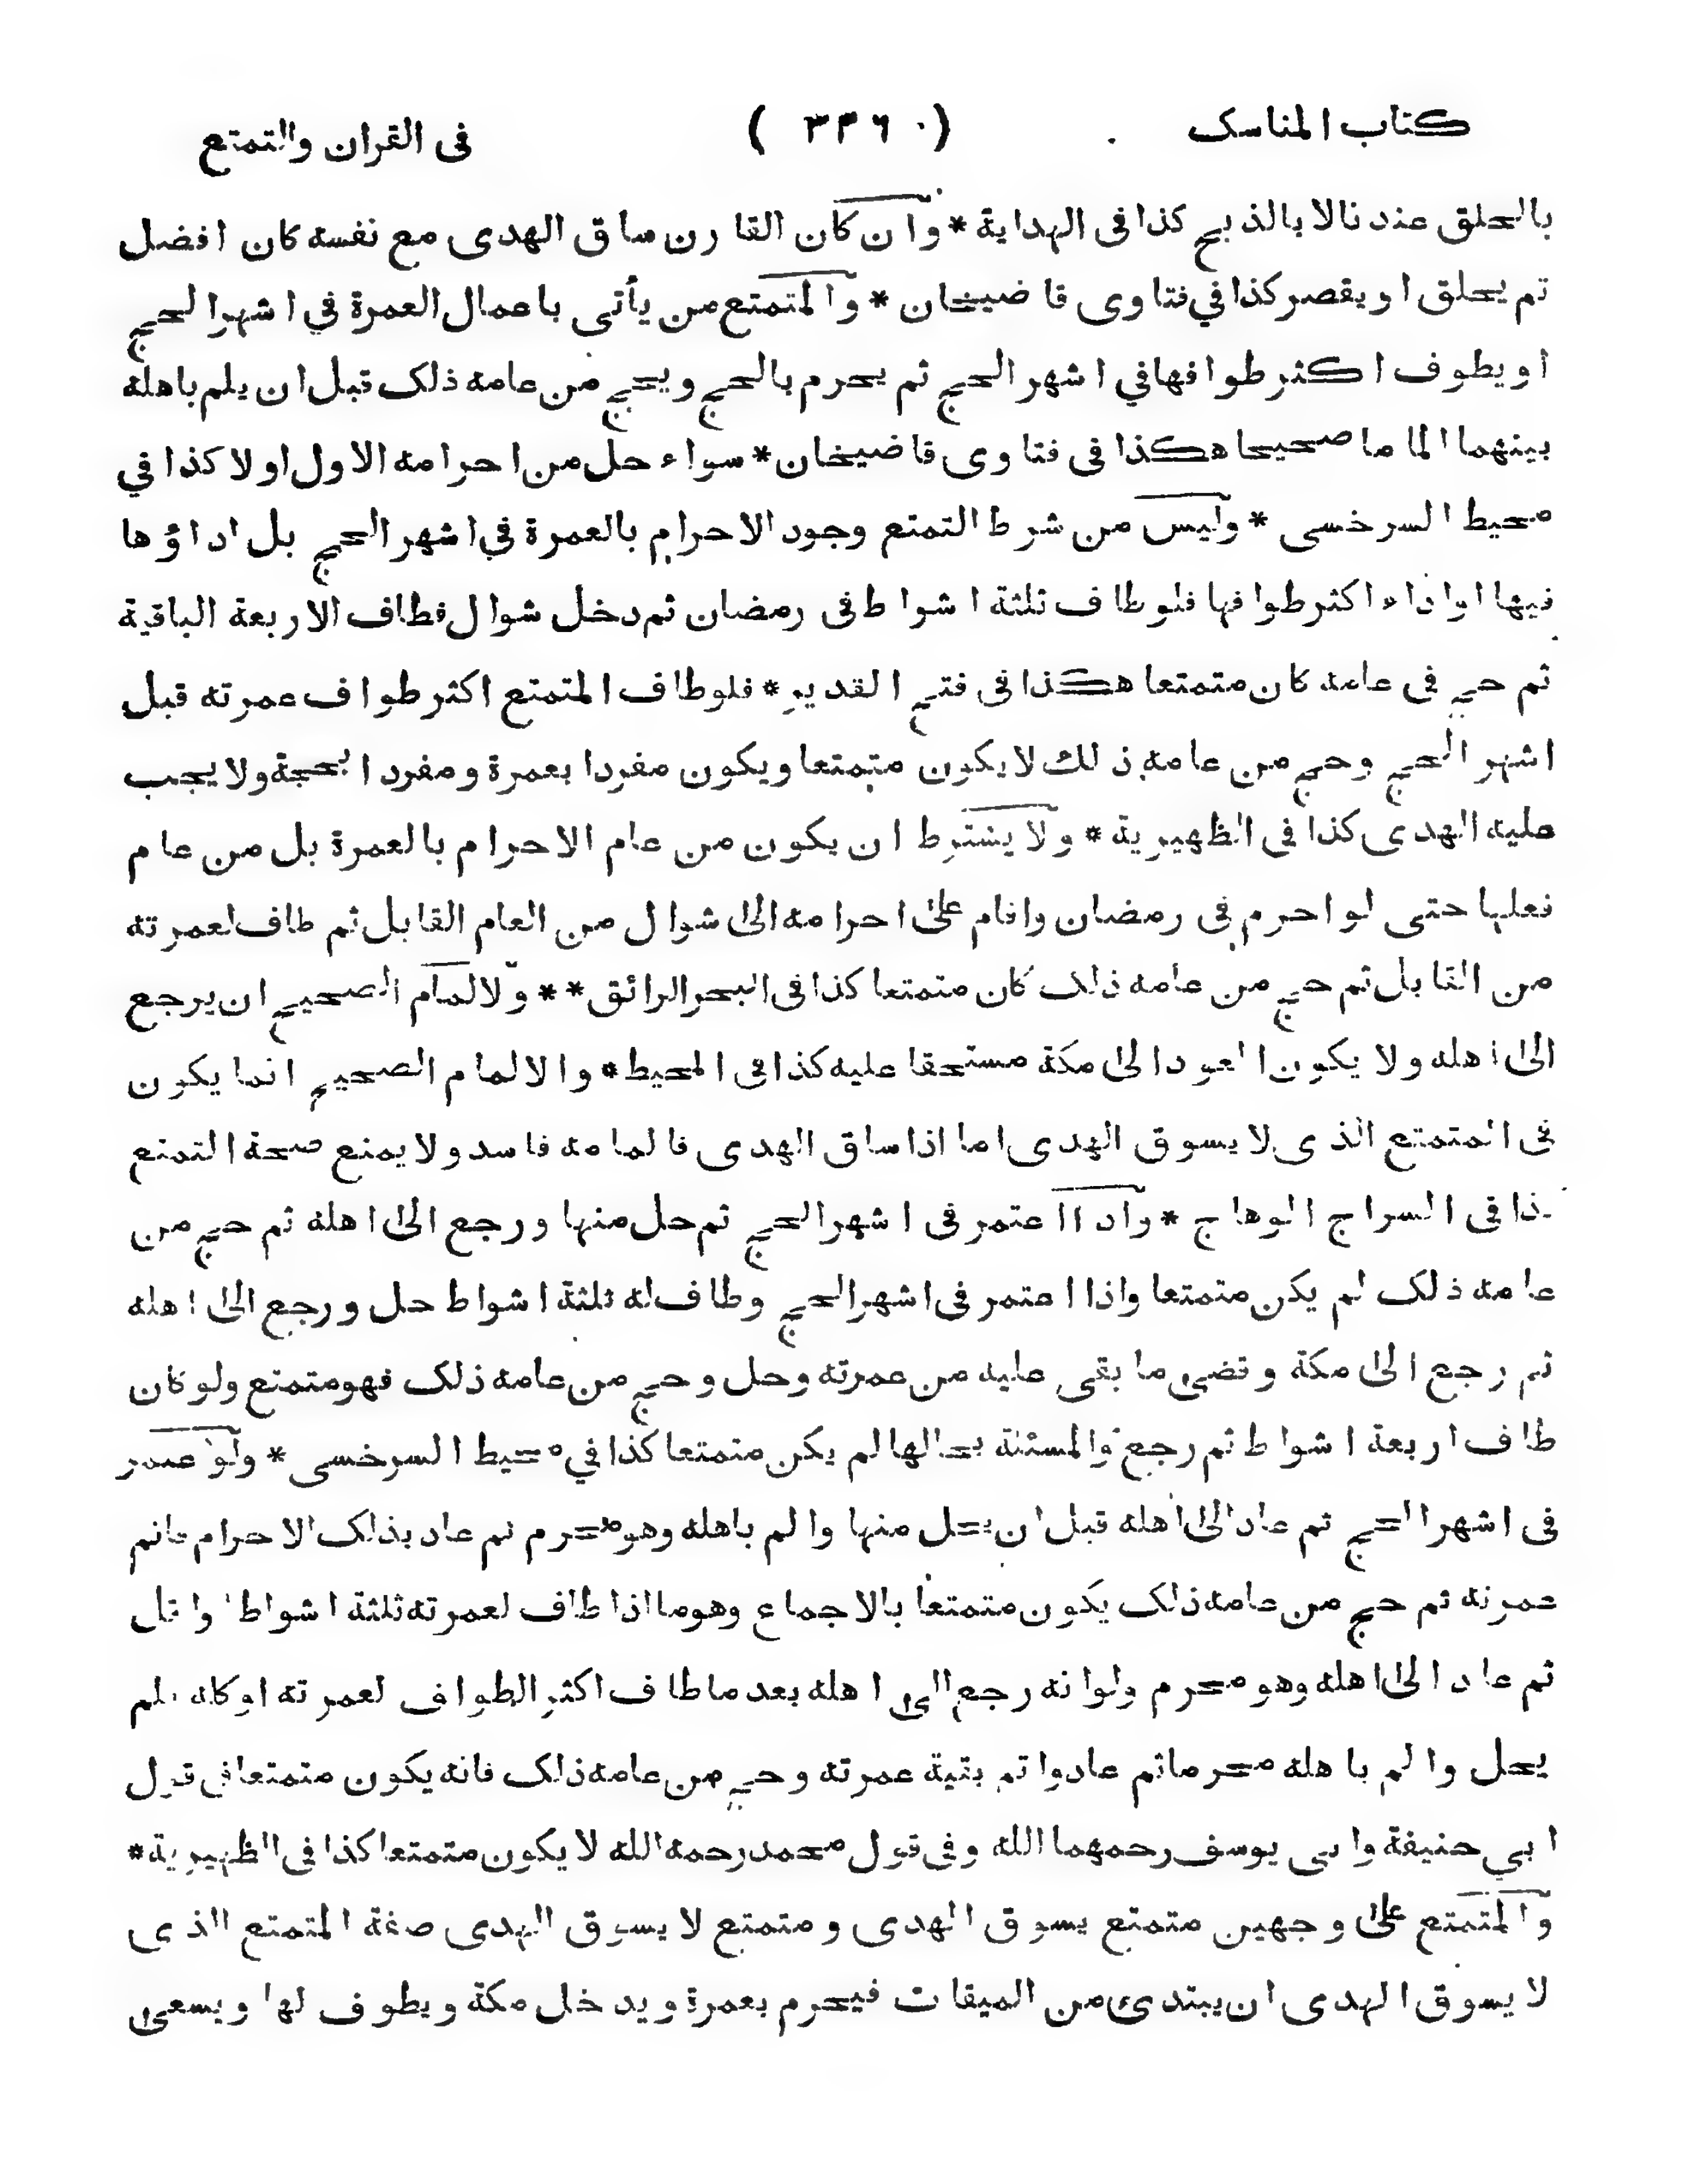 كتاب المناسك ( ٣٣٦ ) فى القران والتمتع
بالحلق عندنا لا بالذبح كذا فى الهداية * وان كان القارن ساق الهدى مع نفسه كان افضل
ثم يحلق او يقصر كذا في فتاوى قاضيخان * والمتمتع من يأتى باعمال العمرة في اشهر الحج
او يطوف اكثر طوافها في اشهر الحج ثم يحرم بالحج ويحج من عامه ذلك قبل ان يلم باهله
بينهما الماما صحيحا هكذا فى فتاوى قاضيخان * سواء حل من احرامه الاول اولا كذا في
محيط السرخسى * وليس من شرط التمتع وجود الاحرام بالعمرة في اشهر الحج بل اداؤها
فيها او اداء اكثر طوافها فلو طاف ثلثة اشواط فى رمضان ثم دخل شوال فطاف الاربعة الباقية
ثم حج فى عامه كان متمتعا هكذا فى فتح القدير * فلو طاف المتمتع اكثر طواف عمرته قبل
اشهر الحج وحج من عامه ذلك لا يكون متمتعا ويكون مفردا بعمرة ومفردا بحجة ولا يجب
عليه الهدى كذا فى الظهيرية * ولا يشترط ان يكون من عام الاحرام بالعمرة بل من عام
فعلها حتى لو احرم فى رمضان واقام على احرامه الى شوال من العام القابل ثم طاف لعمرته
من القابل ثم حج من عامه ذلك كان متمتعا كذا فى البحر الرائق * * ولالمام الصحيح ان يرجع
الى اهله ولا يكون العود الى مكة مستحقا عليه كذا فى المحيط * والالمام الصحيح انما يكون
فى المتمتع الذى لا يسوق الهدى اما اذا ساق الهدى فالمامه فاسد ولا يمنع صحة التمتع
كذا فى السراج الوهاج * واذا اعتمر فى اشهر الحج ثم حل منها ورجع الى اهله ثم حج من
عامه ذلك لم يكن متمتعا واذا اعتمر فى اشهر الحج وطاف له ثلثة اشواط حل ورجع الى اهله
ثم رجع الى مكة وقضى ما بقى عليه من عمرته وحل وحج من عامه ذلك فهو متمتع ولو كان
طاف اربعة اشواط ثم رجع والمسئلة بحالها لم يكن متمتعا كذا في محيط السرخسى * ولو عتمر
فى اشهر الحج ثم عاد الى اهله قبل ان يحل منها والم باهله وهو محرم ثم عاد بذلك الاحرام فاتم
عمرته ثم حج من عامه ذلك يكون متمتعا بالاجماع وهو ما اذا طاف لعمرته ثلثة اشواط او اقل
ثم عاد الى اهله وهو محرم ولو انه رجع الى اهله بعد ما طاف اكثر الطواف لعمرته او كله ولم
يحل والم باهله محرما ثم عاد واتم بقية عمرته وحج من عامه ذلك فانه يكون متمتعا فى قول
ابي حنيفة وابى يوسف رحمهما الله وفى قول محمد رحمه الله لا يكون متمتعا كذا فى الظهيرية *
والمتمتع على وجهين متمتع يسوق الهدى ومتمتع لا يسوق الهدى صفة المتمتع الذى
لا يسوق الهدى ان يبتدئ من الميقات فيحرم بعمرة ويدخل مكة ويطوف لها ويسعى